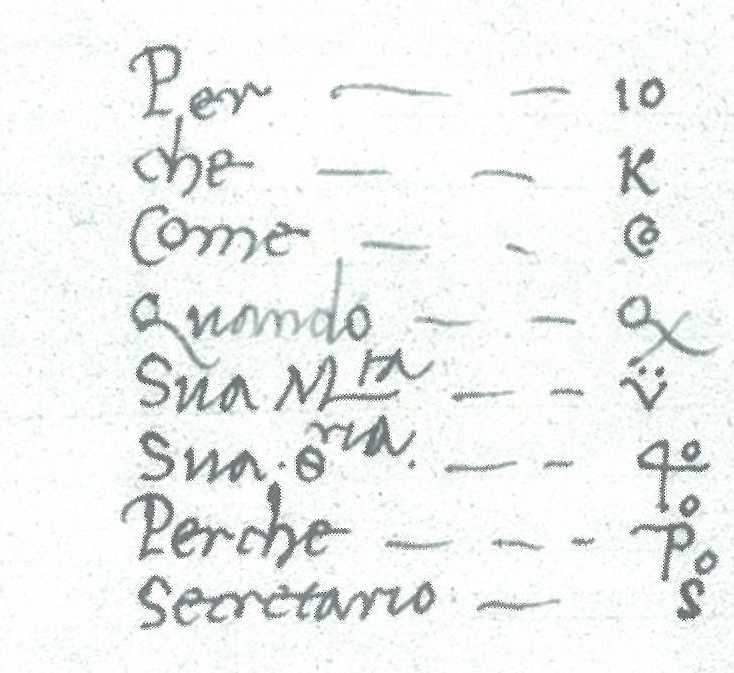 Per — — 10
che — — K
Come — - @
Quando — —
Sua M.tà — — v̈
Sua — - 4º
Perche — — -
Secretario — S